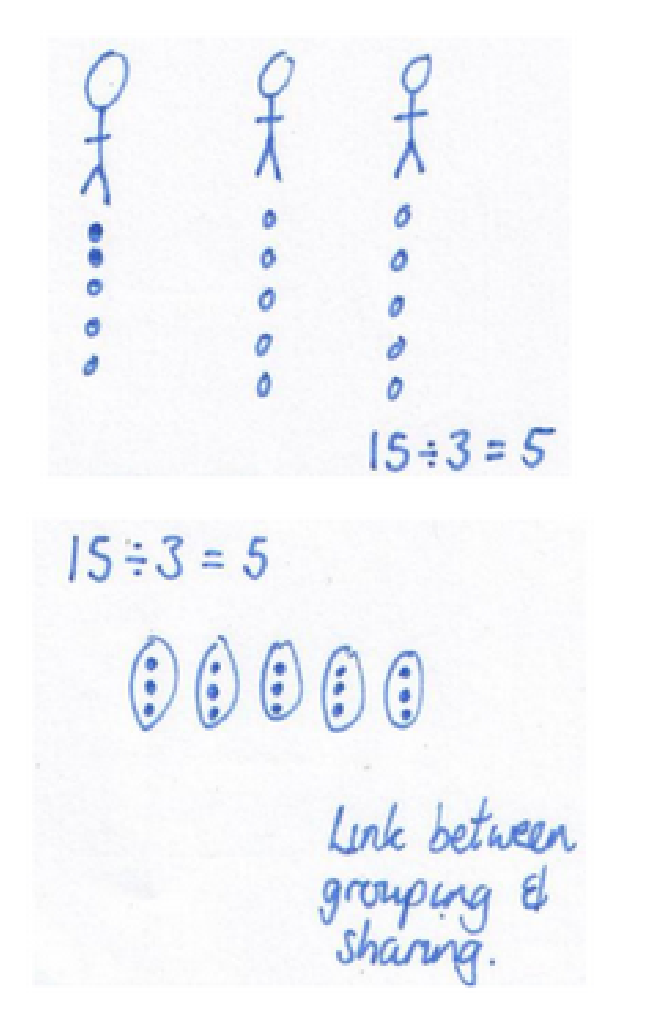 15÷3 = 5
15÷3 = 5
Link between
grouping &
sharing.